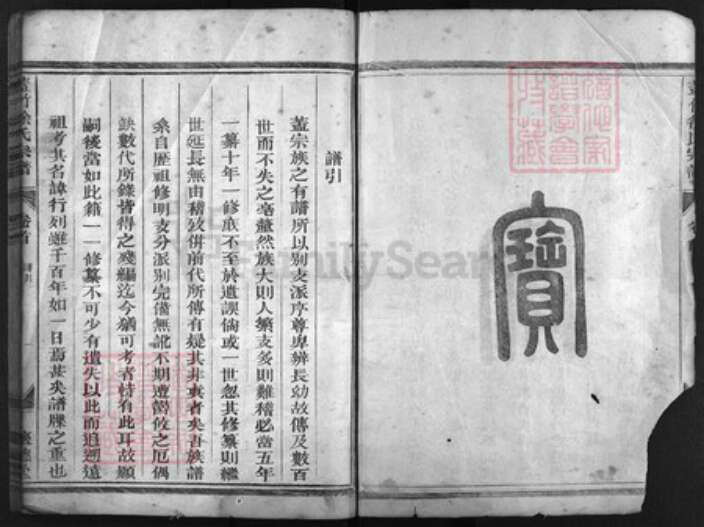 寶
譜引
蓋宗族之有譜所以別支派序尊卑辨長幼故傳及數百
世而不失之毫釐然族大則人繁支多則難稽必當五年
一纂十年一修庶不至於遺誤倘或一世忽其修纂則繼
世延長無由稽攷併前代所傳有疑其非真者矣吾族譜
系自歷祖修明支分派別完備無訛不期遭囘攸之厄偶
缺數代所錄皆得之殘編迄今猶可考者特有此耳故顯
嗣後當如此籍一一修纂不可少有遺失以此而追遡遠
祖考其名諱行列雖千百年如一日焉甚矣譜牒之重也
卷首
譜引
FamilySearch